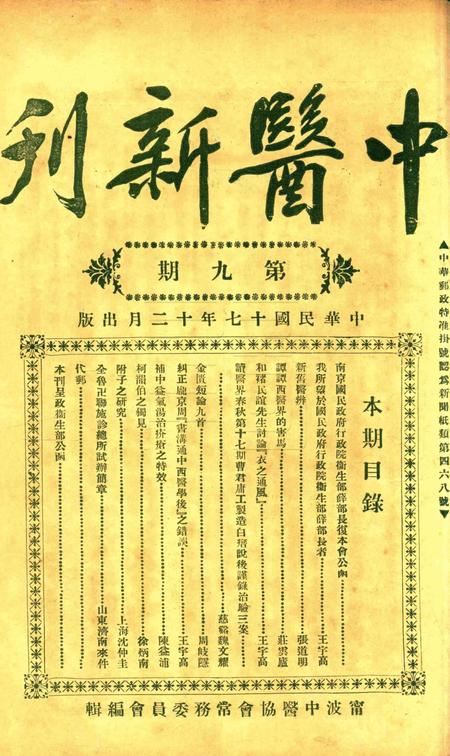 中醫新刊
第九期
中華民國十七年十二月出版
▲中華郵政特准掛號認爲新聞紙類第四六八號▼
本期目錄
南京國民政府行政院衞生部薛部長復本會公函
我所望於國民政府行政院衞生部薛部長者 王宇高
新舊醫辨 張道明
譚譚西醫界的害馬 莊雲廬
和褚民誼先生討論『衣之通風』 王宇高
讀醫界春秋第十七期曹君庸工製造白㾦說後謹錄治騐三案 慈谿魏文耀
金匱短論九首 周岐隱
糾正龐京周『書溝通中西醫學後』之錯誤 王宇高
補中益氣湯治疥瘡之特效 陳益浦
柯韻伯之獨見 徐炳南
附子之研究 上海沈仲圭
全魯卍聯施診總所試辦簡章 山東濟南來件
代郵
本刊呈政衞生部公函
甯波中醫協會常務委員會編輯